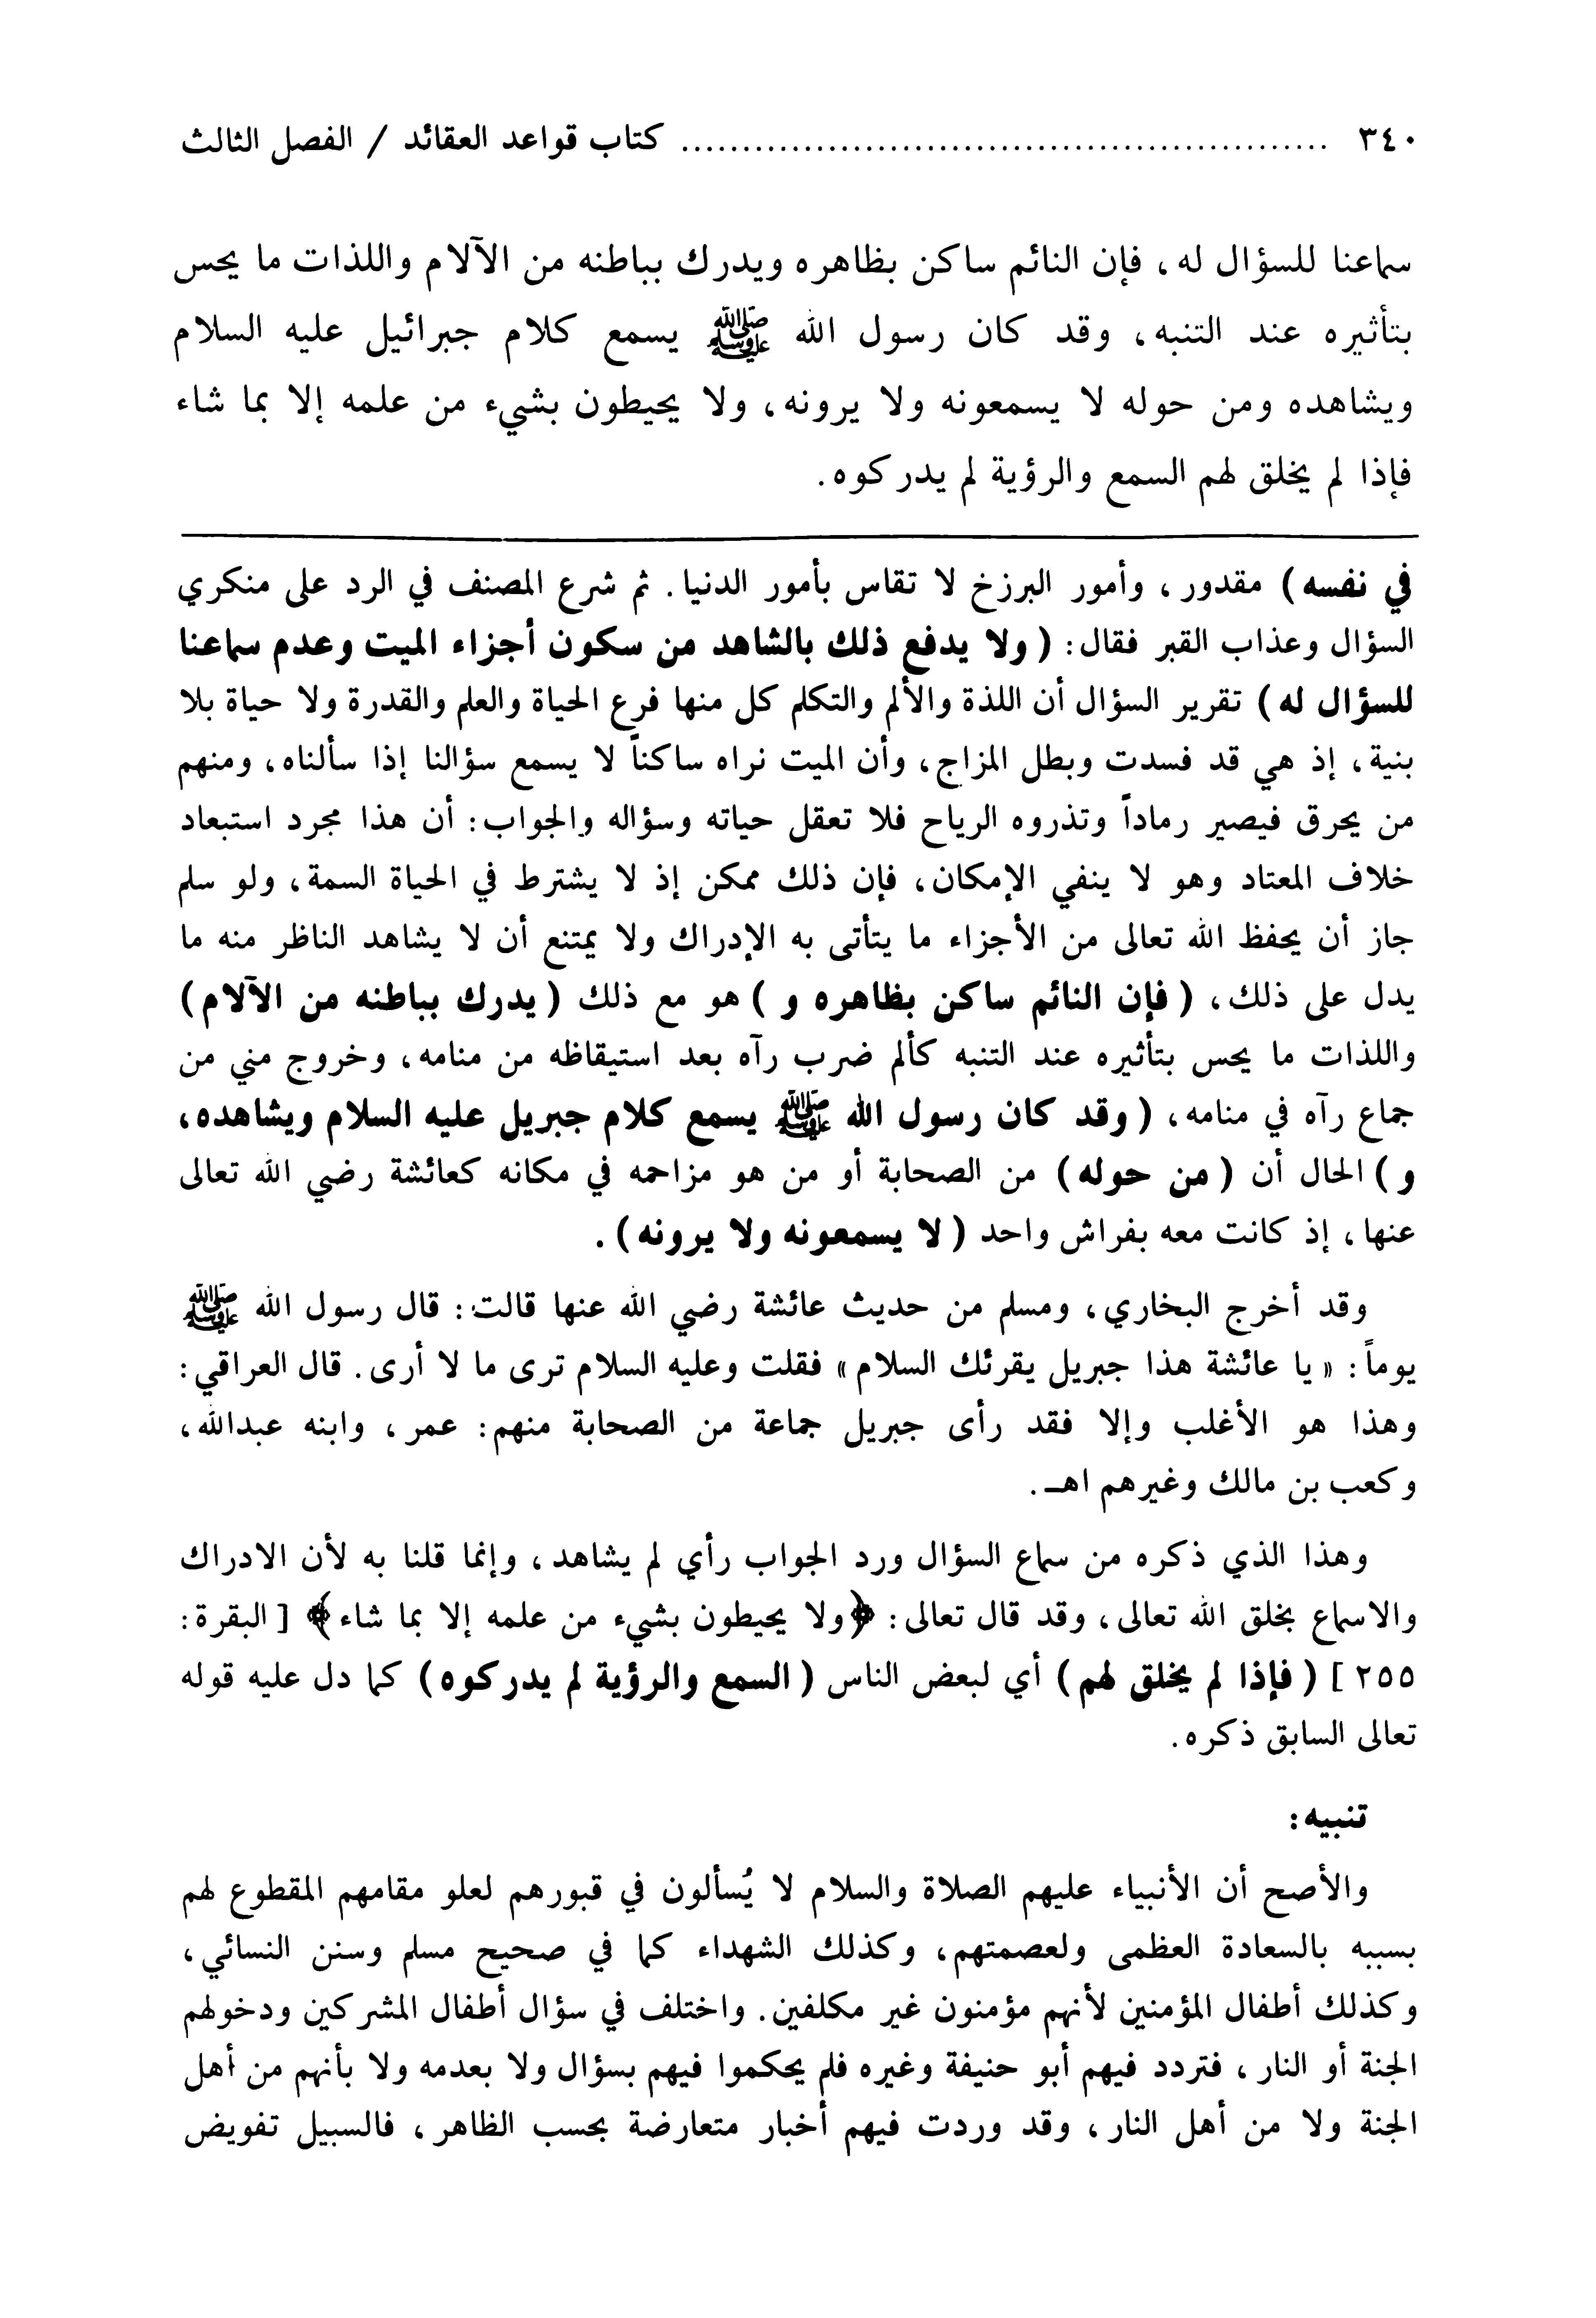 ٣٤٠ ................................................ كتاب قواعد العقائد / الفصل الثالث
سماعنا للسؤال له، فإن النائم ساكن بظاهره ويدرك بباطنه من الآلام واللذات ما يحس
بتأثيره عند التنبه، وقد كان رسول الله ﷺ يسمع كلام جبرائيل عليه السلام
ويشاهده ومن حوله لا يسمعونه ولا يرونه، ولا يحيطون بشيء من علمه إلا بما شاء
فإذا لم يخلق لهم السمع والرؤية لم يدركوه.
في نفسه) مقدور، وأمور البرزخ لا تقاس بأمور الدنيا. ثم شرع المصنف في الرد على منكري
السؤال وعذاب القبر فقال: (ولا يدفع ذلك بالشاهد من سكون أجزاء الميت وعدم سماعنا
للسؤال له) تقرير السؤال أن اللذة والألم والتكلم كل منها فرع الحياة والعلم والقدرة ولا حياة بلا
بنية، إذ هي قد فسدت وبطل المزاج، وأن الميت نراه ساكناً لا يسمع سؤالنا إذا سألناه، ومنهم
من يحرق فيصير رماداً وتذروه الرياح فلا تعقل حياته وسؤاله والجواب: أن هذا مجرد استبعاد
خلاف المعتاد وهو لا ينفي الإمكان، فإن ذلك ممكن إذ لا يشترط في الحياة السمة، ولو سلم
جاز أن يحفظ الله تعالى من الأجزاء ما يتأتى به الإدراك ولا يمتنع أن لا يشاهد الناظر منه ما
يدل على ذلك، (فإن النائم ساكن بظاهره و) هو مع ذلك (يدرك بباطنه من الآلام)
واللذات ما يحس بتأثيره عند التنبه كألم ضرب رآه بعد استيقاظه من منامه، وخروج مني من
جماع رآه في منامه، (وقد كان رسول الله ﷺ يسمع كلام جبريل عليه السلام ويشاهده،
و) الحال أن (من حوله) من الصحابة أو من هو مزاحمه في مكانه كعائشة رضي الله تعالى
عنها، إذ كانت معه بفراش واحد (لا يسمعونه ولا يرونه).
وقد أخرج البخاري، ومسلم من حديث عائشة رضي الله عنها قالت: قال رسول الله ﷺ
يوماً: «يا عائشة هذا جبريل يقرئك السلام» فقلت وعليه السلام ترى ما لا أرى. قال العراقي:
وهذا هو الأغلب وإلا فقد رأى جبريل جماعة من الصحابة منهم: عمر، وابنه عبدالله،
وكعب بن مالك وغيرهم اهـ.
وهذا الذي ذكره من سماع السؤال ورد الجواب رأي لم يشاهد، وإنما قلنا به لأن الادراك
والاسماع بخلق الله تعالى، وقد قال تعالى: ﴿ولا يحيطون بشيء من علمه إلا بما شاء﴾ [البقرة:
٢٥٥] (فإذا لم يخلق لهم) أي لبعض الناس (السمع والرؤية لم يدركوه) كما دل عليه قوله
تعالى السابق ذكره.
تنبيه:
والأصح أن الأنبياء عليهم الصلاة والسلام لا يُسألون في قبورهم لعلو مقامهم المقطوع لهم
بسببه بالسعادة العظمى ولعصمتهم، وكذلك الشهداء كما في صحيح مسلم وسنن النسائي،
وكذلك أطفال المؤمنين لأنهم مؤمنون غير مكلفين. واختلف في سؤال أطفال المشركين ودخولهم
الجنة أو النار، فتردد فيهم أبو حنيفة وغيره فلم يحكموا فيهم بسؤال ولا بعدمه ولا بأنهم من أهل
الجنة ولا من أهل النار، وقد وردت فيهم أخبار متعارضة بحسب الظاهر، فالسبيل تفويض